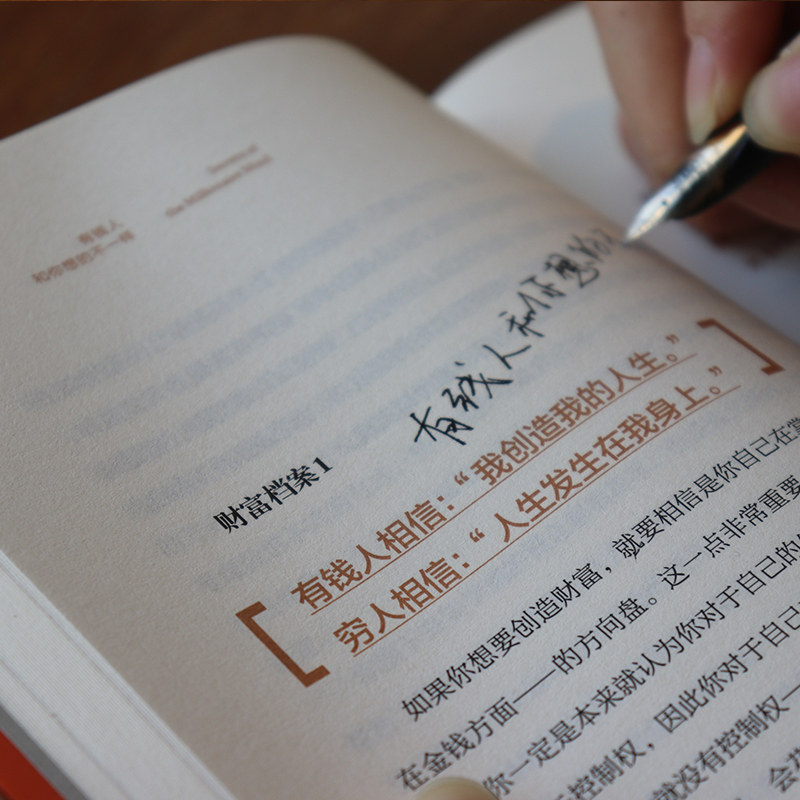 有钱人
和你想的不一样
Secrets of
the Millionaire Mind
有钱人和你想的
财富档案1
有钱人相信：“我创造我的人生。”
穷人相信：“人生发生在我身上。”
如果你想要创造财富，就要相信是你自己在掌
在金钱方面——的方向盘。这一点非常重要
你一定是本来就认为你对于自己的
控制权，因此你对于自己
就没有控制权—
会花